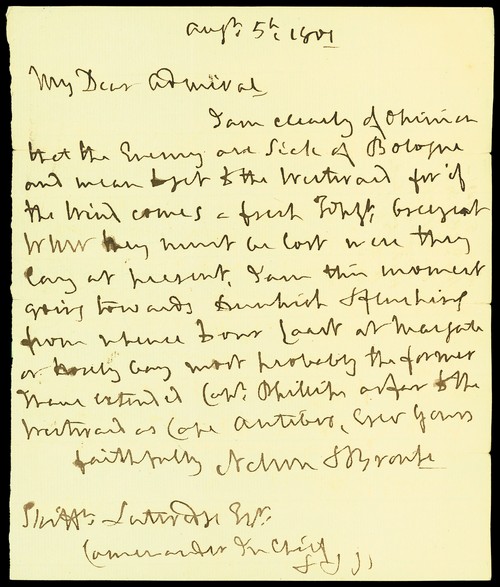 Augt. 5th. 1801
My Dear Admiral
I am clearly of Opinion
that the Enemy are Sick of Bologne
and mean to get to the Westward for if
the Wind comes a fresh
West they must be lost were they
Lay at present, I am this moment
going towards Dunkirk & Flushing
from whence to our Coast at Margate
or Hosely bay most probably the former
I have extended Capt. Phillips as far to the
Westward as Cape Antifer, Ever Yours
faithfully Nelson & Bronte
Lutwidge Esqr.
Commander In Chief